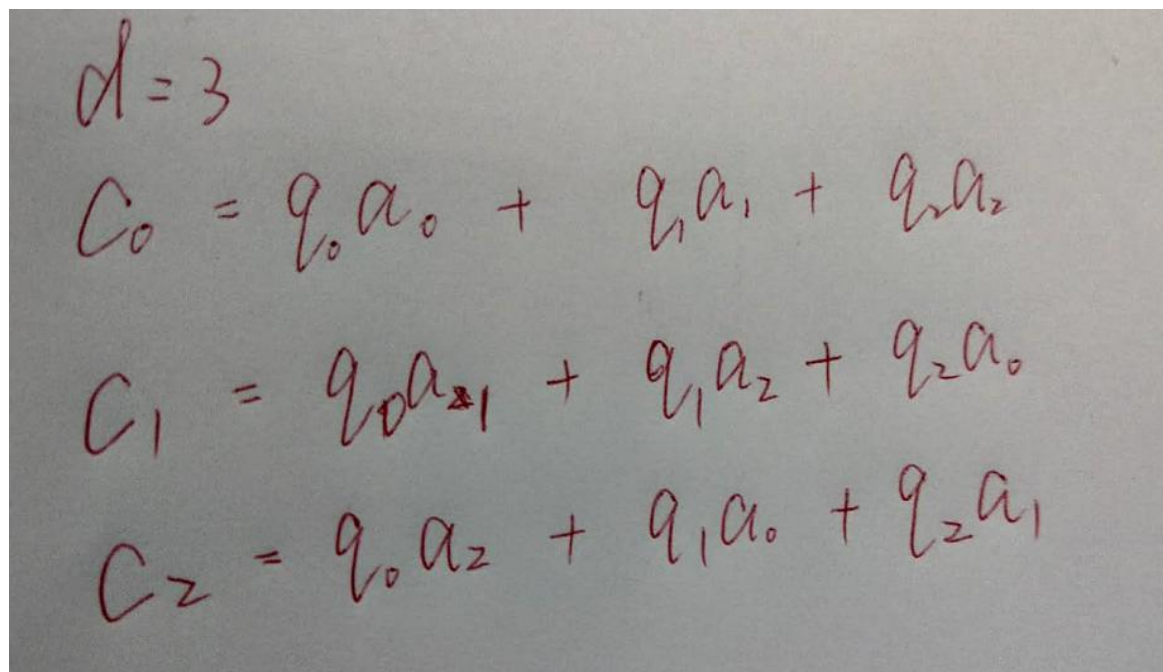 d = 3
C₀ = q₀a₀ + q₁a₁ + q₂a₂
C₁ = q₀a₁ + q₁a₂ + q₂a₀
C₂ = q₀a₂ + q₁a₀ + q₂a₁